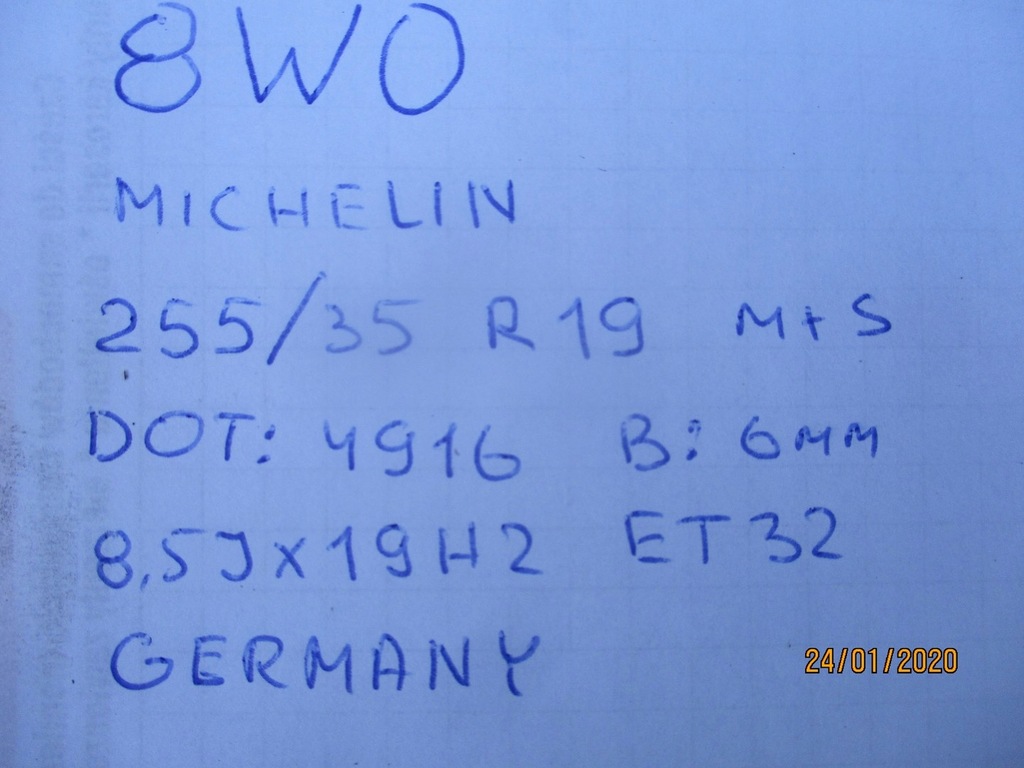 8WO
MICHELIN
255/35 R19 M+S
DOT: 4916 B: 6MM
8,5Jx19H2 ET32
GERMANY
24/01/2020